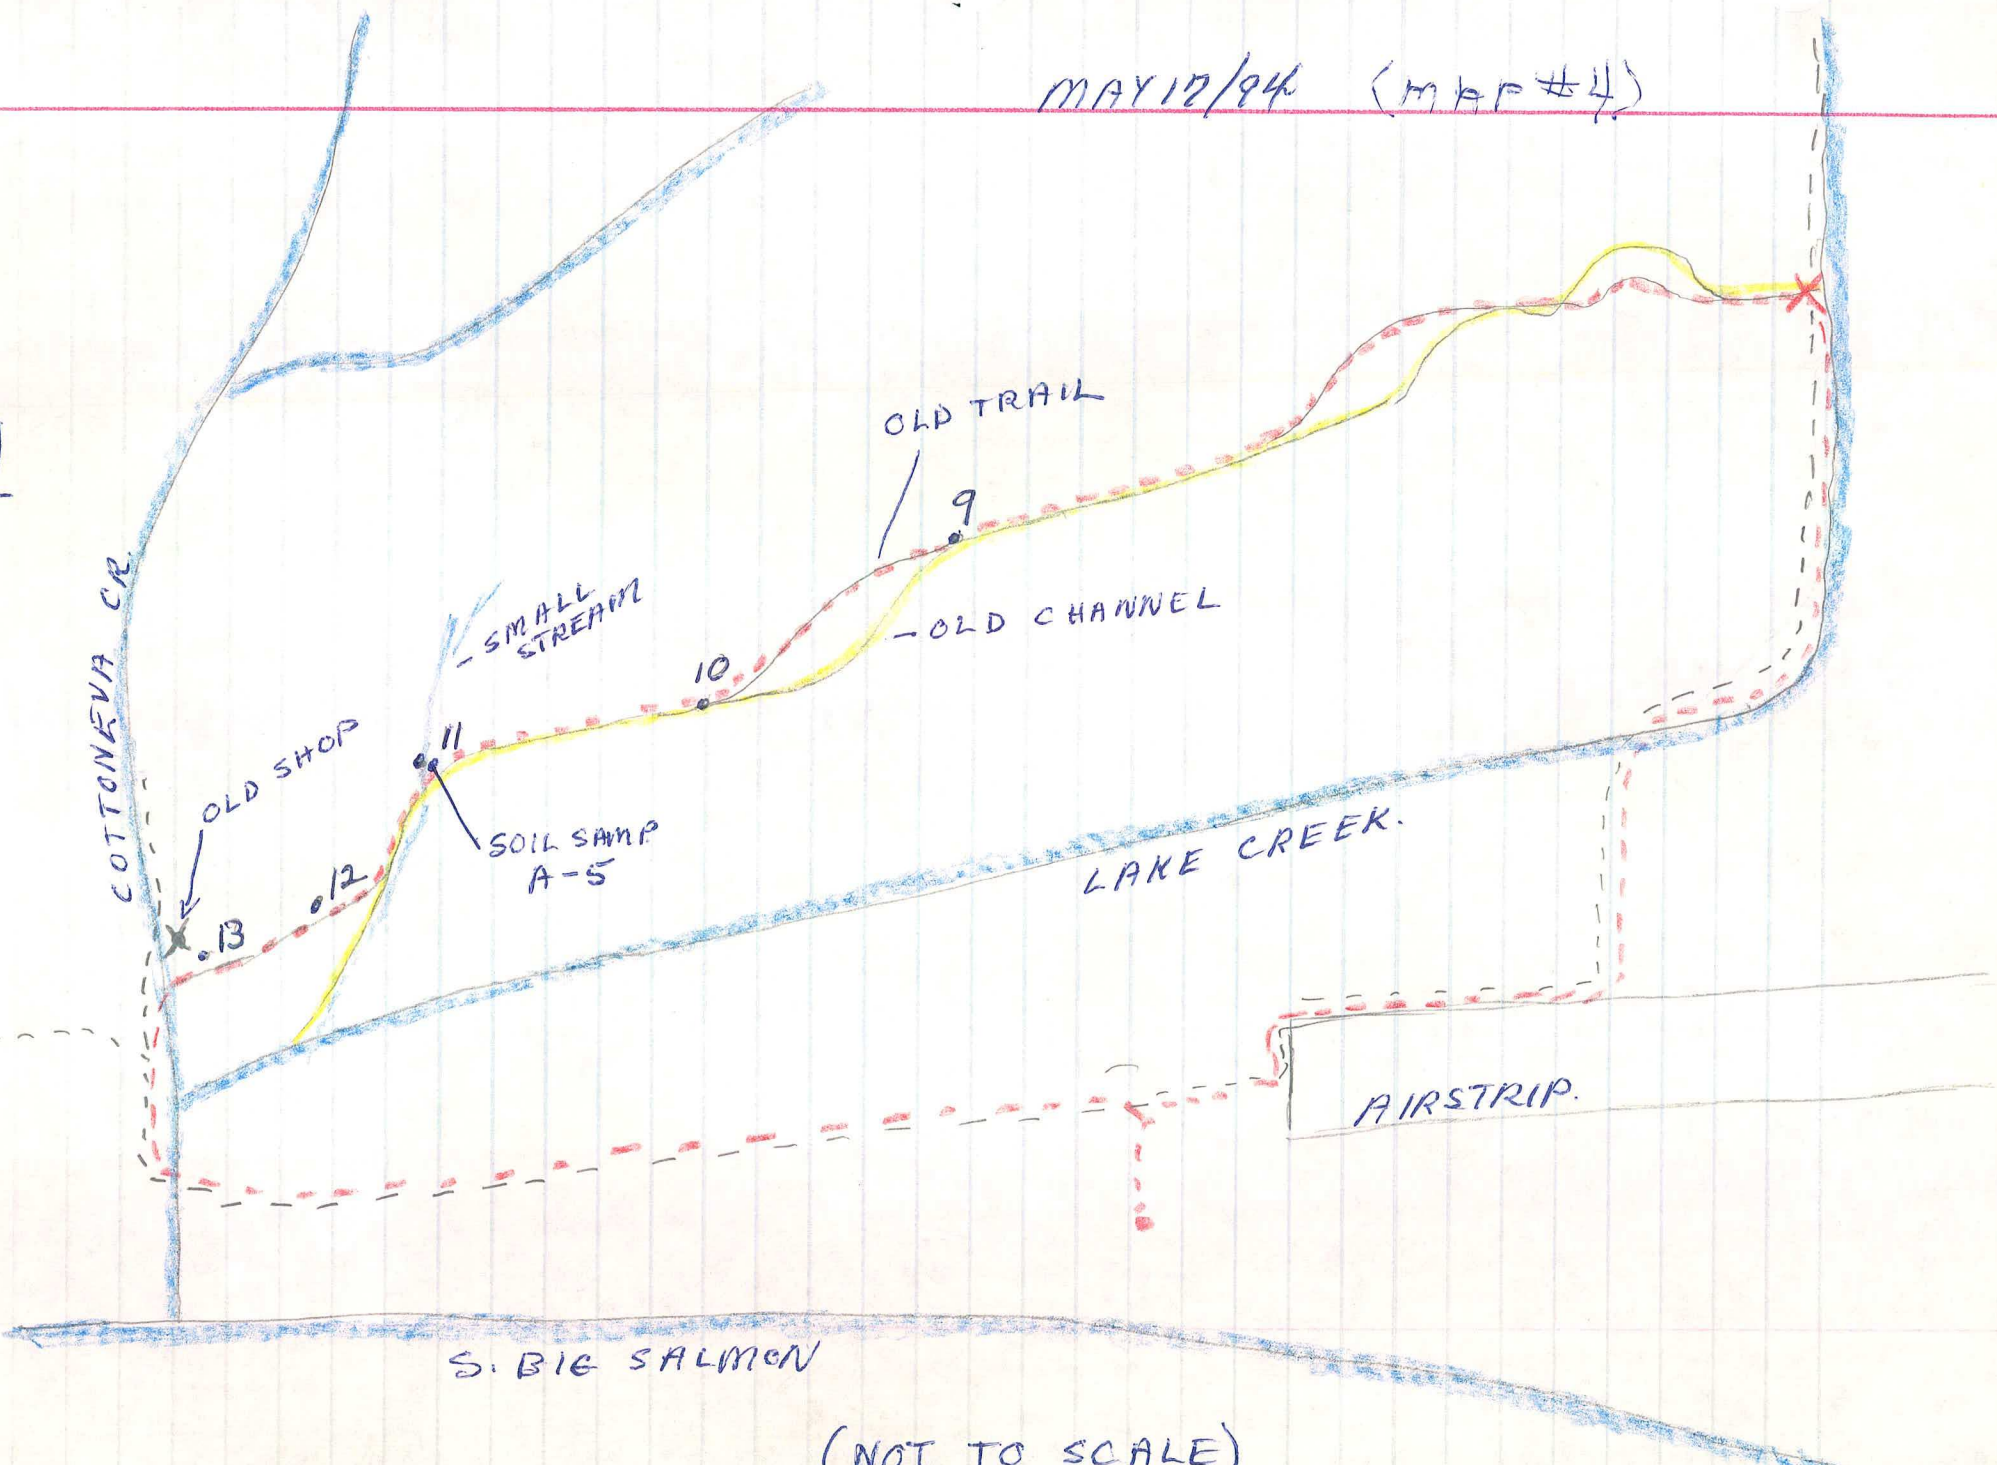 MAY 17/94 (MAP #4)
OLD TRAIL
9
SMALL
STREAM
OLD CHANNEL
COTTONEVA CR.
10
11
OLD SHOP
SOIL SAMP
A-5
LAKE CREEK.
.12
.13
AIRSTRIP.
S. BIG SALMON
(NOT TO SCALE)